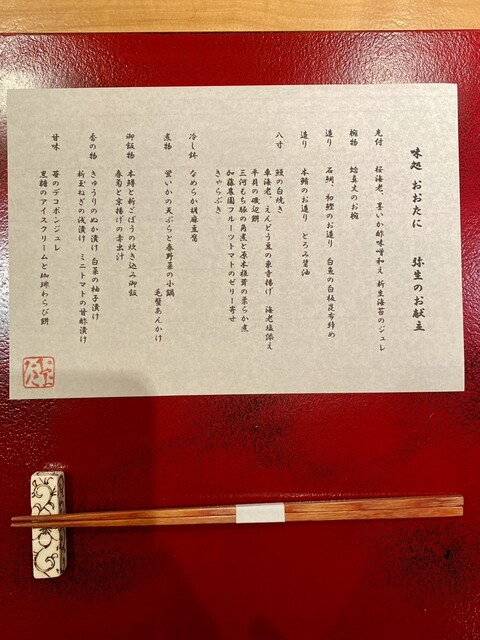 味処 おおたに 弥生のお献立
先付 桜海老、墨いか酢味噌和え 新生海苔のジュレ
椀物 蛤真丈のお椀
造り 石鯛、初鰹のお造り 白魚の白板昆布締め
造り 本鮪のお造り とろみ醤油
八寸 鰻の白焼き
車海老、えんどう豆の東寺揚げ 海老塩添え
平貝の磯辺餅
三河もち豚の角煮と原木椎茸の柔らか煮
加藤農園フルーツトマトのゼリー寄せ
きゃらぶき
冷し鉢 なめらか胡麻豆腐
煮物 蛍いかの天ぷらと春野菜の小鍋
毛蟹あんかけ
御飯物 本鱒と新ごぼうの炊き込み御飯
春菊と京揚げの赤出汁
香の物 きゅうりのぬか漬け 白菜の柚子漬け
新玉ねぎの浅漬け ミニトマトの甘酢漬け
甘味 苺のデコポンジュレ
黒糖のアイスクリームと珈琲わらび餅